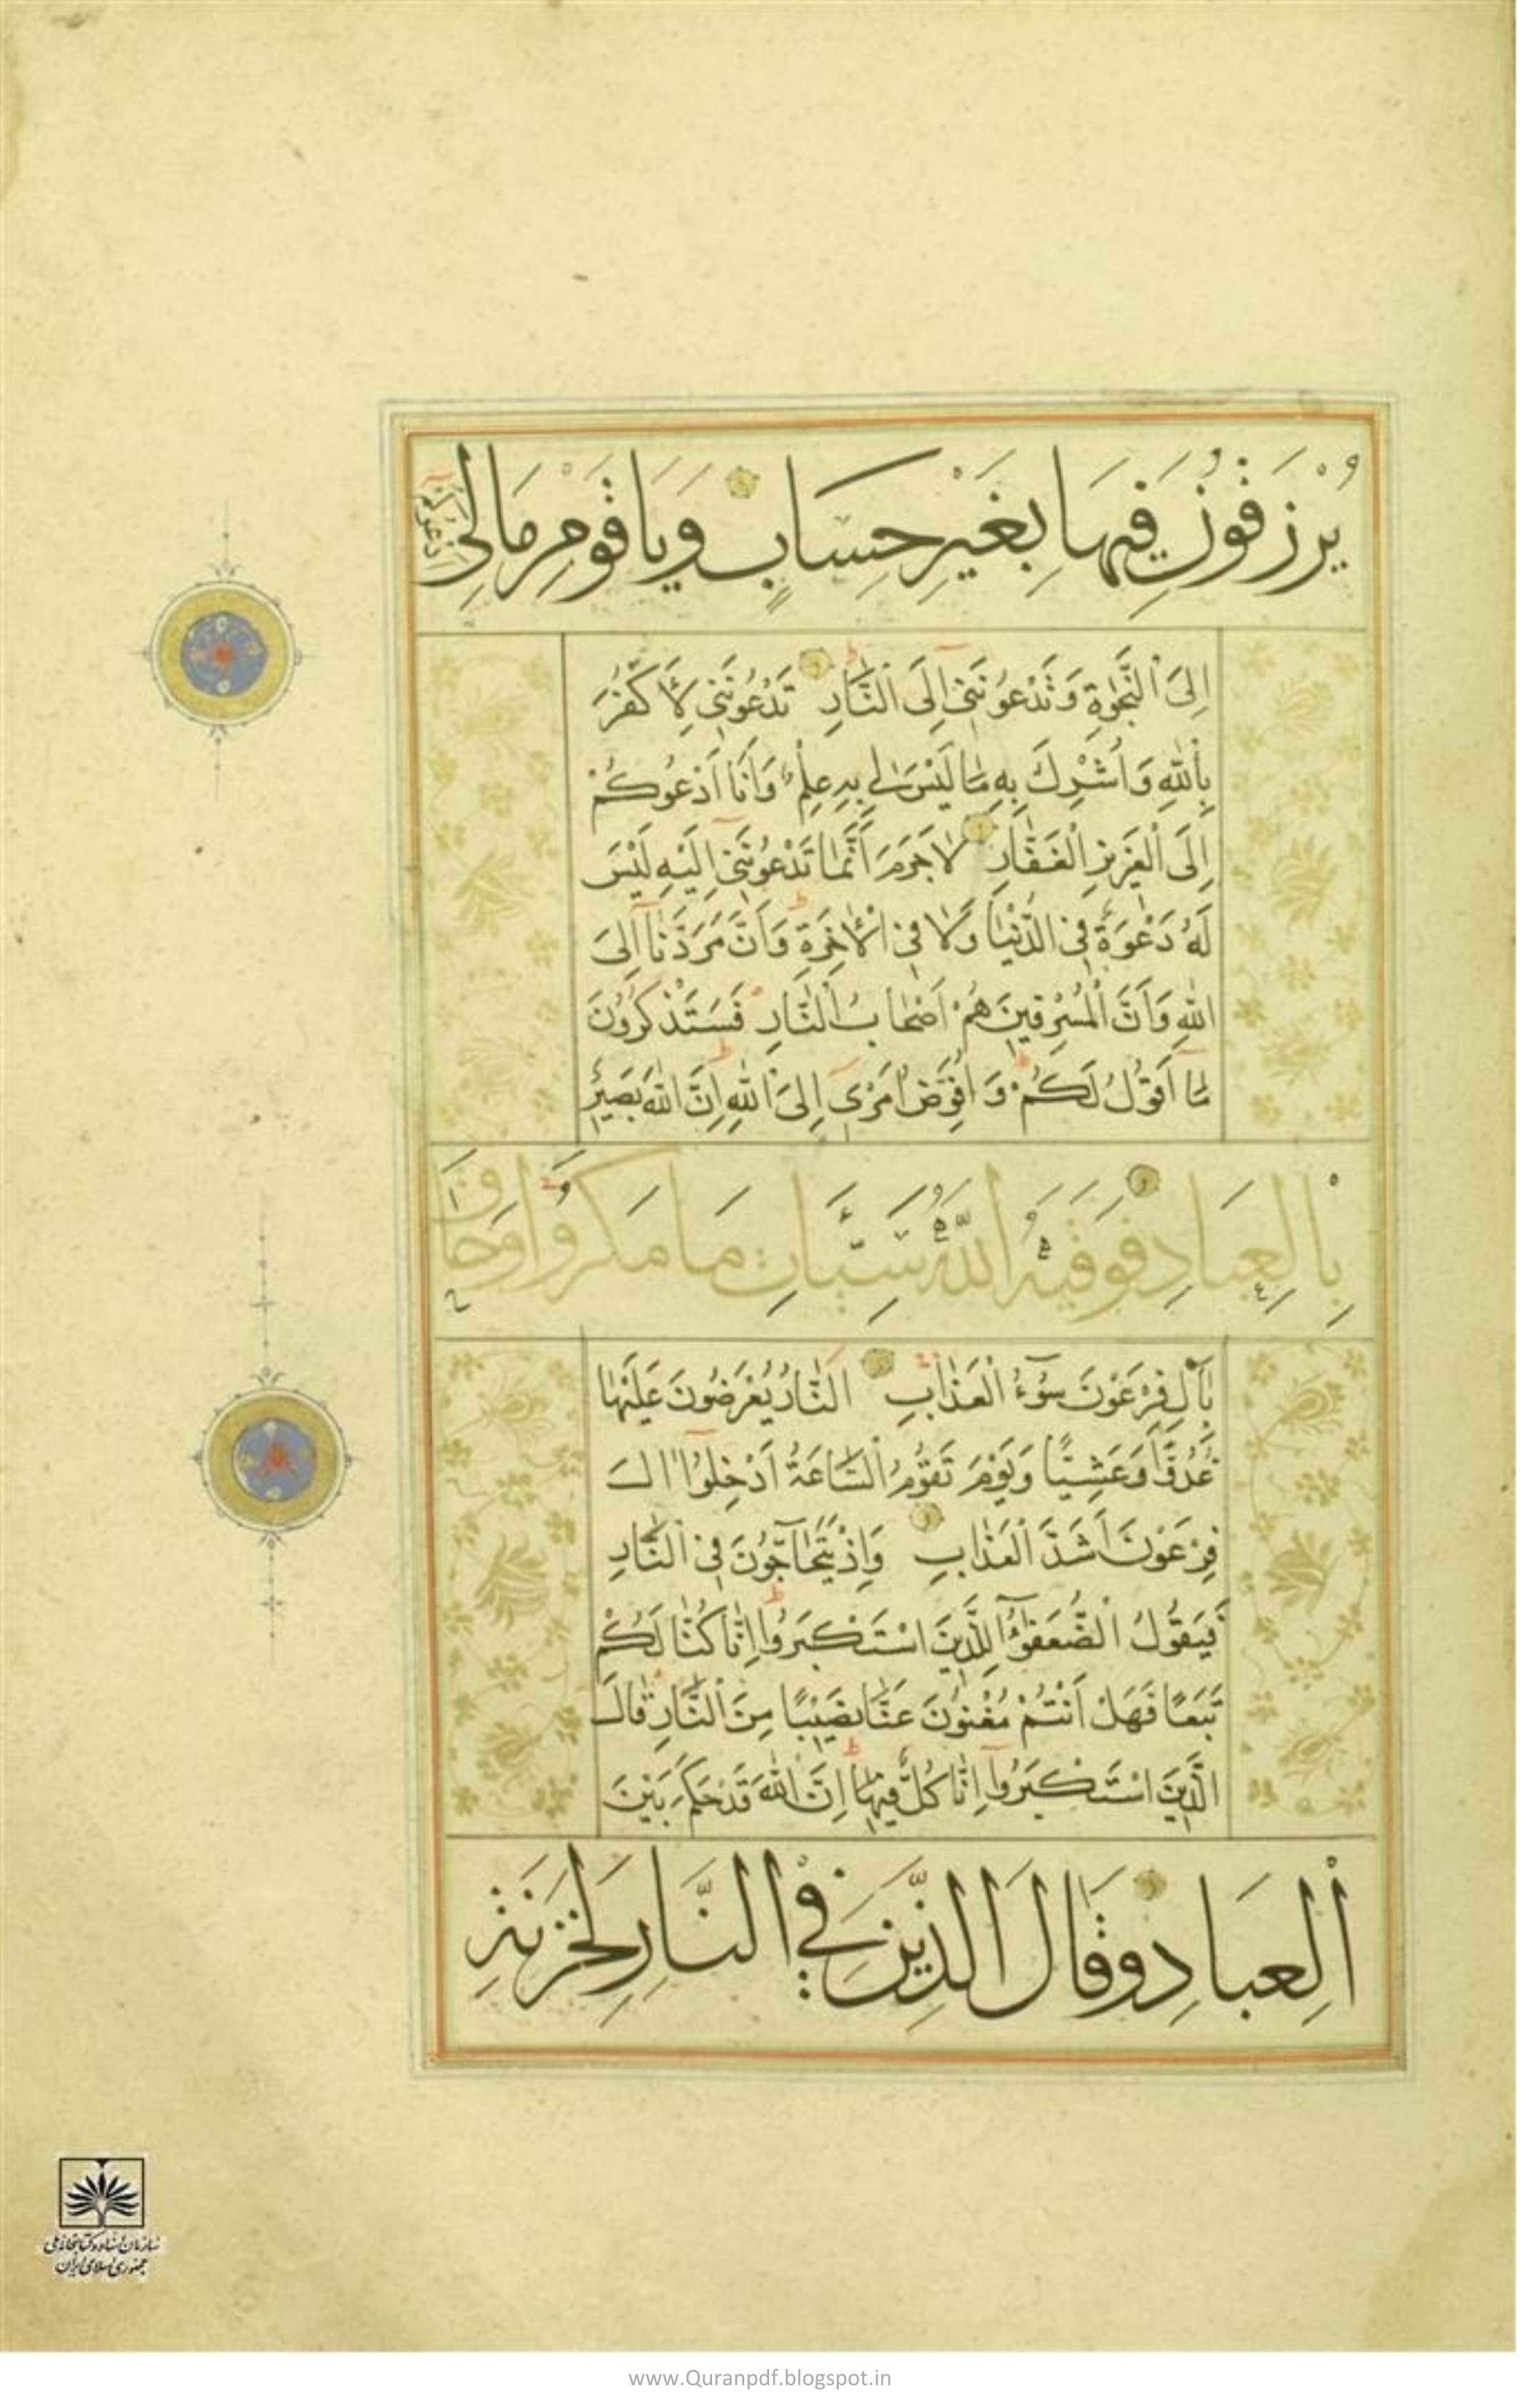 يُرْزَقُونَ فِيهَا بِغَيْرِ حِسَابٍ وَيَا قَوْمِ مَا لِي أَدْعُوكُمْ
اِلَى النَّجٰوةِ وَتَدْعُونَنِي اِلَى النَّارِ تَدْعُونَنِي لِاَكْفُرَ
بِاللّٰهِ وَاُشْرِكَ بِهِ مَا لَيْسَ لِي بِهِ عِلْمٌ وَاَنَا اَدْعُوكُمْ
اِلَى الْعَزِيزِ الْغَفَّارِ لَا جَرَمَ اَنَّمَا تَدْعُونَنِي اِلَيْهِ لَيْسَ
لَهُ دَعْوَةٌ فِي الدُّنْيَا وَلَا فِي الْاٰخِرَةِ وَاَنَّ مَرَدَّنَا اِلَى
اللّٰهِ وَاَنَّ الْمُسْرِفِينَ هُمْ اَصْحَابُ النَّارِ فَسَتَذْكُرُونَ
مَا اَقُولُ لَكُمْ وَاُفَوِّضُ اَمْرِي اِلَى اللّٰهِ اِنَّ اللّٰهَ بَصِيرٌ
بِالْعِبَادِ فَوَقٰيهُ اللّٰهُ سَيِّاٰتِ مَا مَكَرُوا وَحَاقَ
بِاٰلِ فِرْعَوْنَ سُوءُ الْعَذَابِ النَّارُ يُعْرَضُونَ عَلَيْهَا
غُدُوًّا وَعَشِيًّا وَيَوْمَ تَقُومُ السَّاعَةُ اَدْخِلُوا اٰلَ
فِرْعَوْنَ اَشَدَّ الْعَذَابِ وَاِذْ يَتَحَاجُّونَ فِي النَّارِ
فَيَقُولُ الضُّعَفٰؤُا لِلَّذِينَ اسْتَكْبَرُوا اِنَّا كُنَّا لَكُمْ
تَبَعًا فَهَلْ اَنْتُمْ مُغْنُونَ عَنَّا نَصِيبًا مِنَ النَّارِ قَالَ
الَّذِينَ اسْتَكْبَرُوا اِنَّا كُلٌّ فِيهَا اِنَّ اللّٰهَ قَدْ حَكَمَ بَيْنَ
الْعِبَادِ وَقَالَ الَّذِينَ فِي النَّارِ لِخَزَنَةِ
سازمان اسناد و کتابخانه ملی
جمهوری اسلامی ایران
www.Quranpdf.blogspot.in